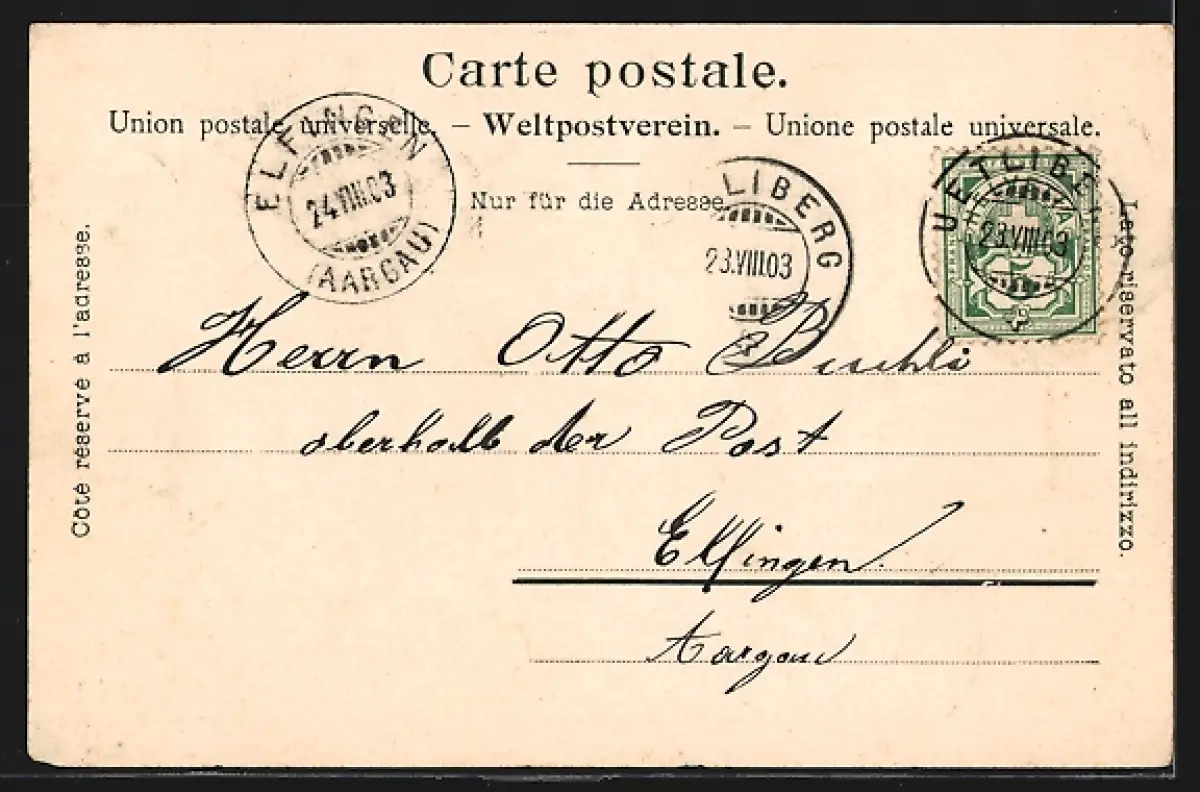 Carte postale.
Union postale universelle. – Weltpostverein. – Unione postale universale.
Nur für die Adresse.
Côté réservé à l'adresse.
Lato riservato all indirizzo.
ELFINGEN
24.VIII.03
(AARGAU)
LIBERG
23.VIII.03
UETLIBERG
23.VIII.03
5
Herrn Otto Büchli
oberhalb der Post
Elfingen.
Aargau